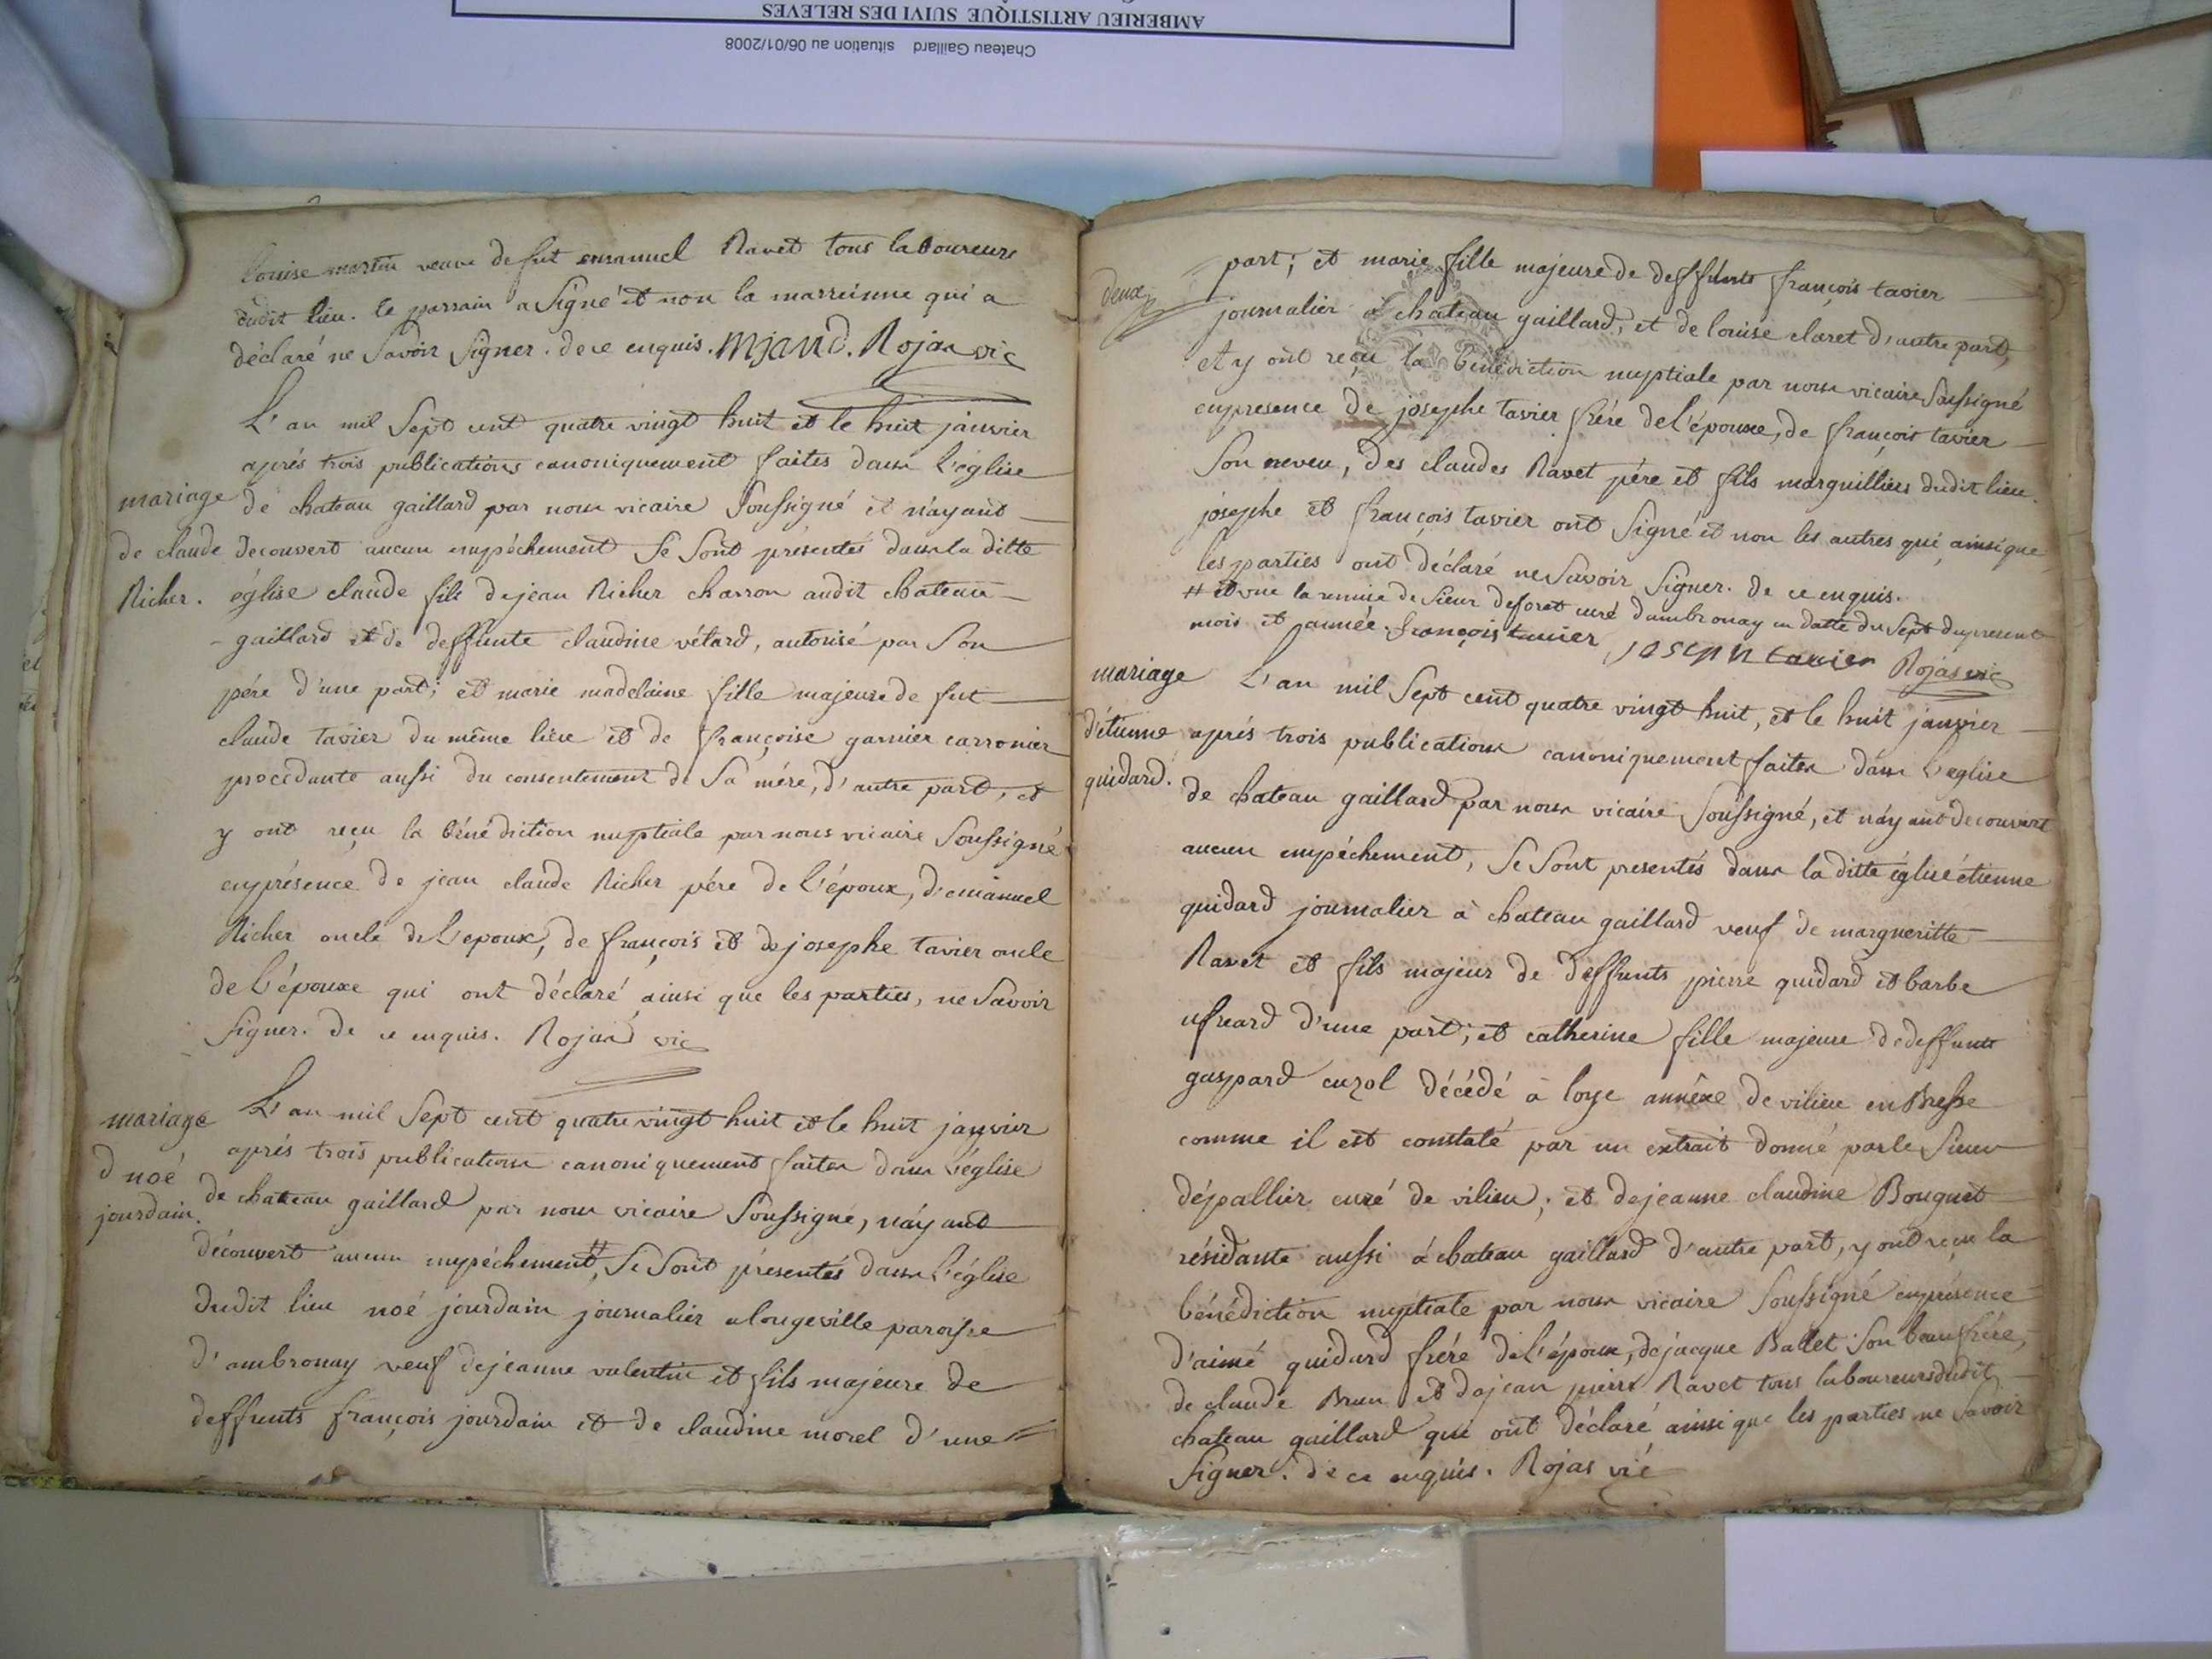 AMBERIEU ARTISTIQUE SUIVI DES RELEVES
Chateau Gaillard situation au 06/01/2008
louise martin veuve de fut emanuel Ravet tous laboureurs
dudit lieu. le parrain a signé et non la marreinne qui a
déclaré ne savoir signer. de ce enquis. Mjand. Rojas vic
L'an mil sept cent quatre vingt huit et le huit janvier
aprés trois publications canoniquement faites dans l'église
mariage
de claude
Richer.
de chateau gaillard par nous vicaire soussigné et n'ayant
decouvert aucun empéchement se sont présentés dans la ditte
église claude fils de jean Richer charron audit chateau
gaillard et de deffunte claudine vétard, autorisé par son
pére d'une part; et marie madelaine fille majeure de fut
claude tavier du même lieu et de françoise garnier carronier
procédante aussi du consentement de sa mére, d'autre part, et
y ont reçu la bénédiction nuptiale par nous vicaire soussigné
en présence de jean claude Richer pére de l'époux, d'emanuel
Richer oncle de l'epoux, de françois et de josephe tavier oncle
de l'épouse qui ont déclaré ainsi que les parties, ne savoir
signer. de ce enquis. Rojas vic
mariage
d noé
jourdain.
L'an mil sept cent quatre vingt huit et le huit janvier
aprés trois publications canoniquement faites dans l'église
de chateau gaillard par nous vicaire soussigné, n'ayant
découvert aucun empéchement, # se sont présentés dans l'église
dudit lieu noé jourdain journalier a longeville paroisse
d'ambronay veuf de jeanne valentin et fils majeure de
deffunts françois jourdain et de claudine morel d'une
deux
part; et marie fille majeure de deffunts françois tavier
journalier à chateau gaillard, et de louise claret d'autre part,
et y ont reçu la bénédiction nuptiale par nous vicaire soussigné
en presence de josephe tavier frére de l'épouse, de françois tavier
son neveu, des claudes Ravet pére et fils marguilliers dudit lieu.
josephe et françois tavier ont signé et non les autres qui ainsi que
les parties ont déclaré ne savoir signer. de ce enquis.
# et vue la remise de sieur deforet curé d'ambronay en datte du sept du present
mois et année. françois tavier, joseph tavier Rojas vic
mariage
d'étienne
guidard.
L'an mil sept cent quatre vingt huit, et le huit janvier
aprés trois publications canoniquement faites dans l'eglise
de chateau gaillard par nous vicaire soussigné, et n'ayant decouvert
aucun empéchement, se sont presentés dans la ditte église étienne
guidard journalier à chateau gaillard veuf de margueritte
Ravet et fils majeur de deffunts pierre guidard et barbe
d'une part; et catherine fille majeure de deffunts
gaspard cuzol décédé à loye annêxe de vilieu en Bresse
comme il est constaté par un extrait donné par le sieur
déspallier curé de vilieu; et de jeanne claudine Bouquet
résidante aussi à chateau gaillard d'autre part, y ont reçu la
bénédiction nuptiale par nous vicaire soussigné en présence
d'aimé guidard frére de l'époux, de jacque Ballet son beau frére,
de claude Brun et de jean pierre Ravet tous laboureurs dudit
chateau gaillard qui ont déclaré ainsi que les parties ne savoir
signer. de ce enquis. Rojas vic